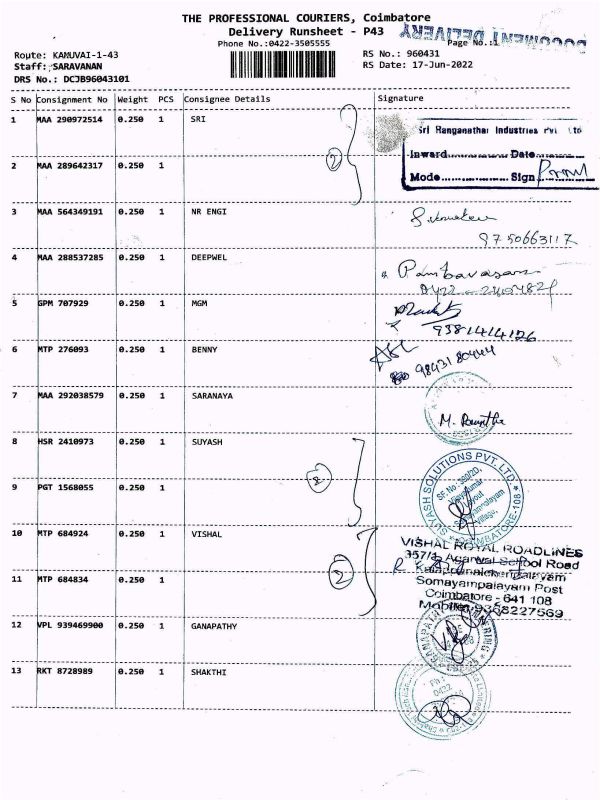 THE PROFESSIONAL COURIERS, Coimbatore
Delivery Runsheet - P43
DOCUMENT DELIVERY
Phone No.:0422-3505555
Page No.:1
Route: KAMUVAI-1-43
RS No.: 960431
Staff: SARAVANAN
RS Date: 17-Jun-2022
DRS No.: DCJB96043101
S No Consignment No Weight PCS Consignee Details Signature
1 MAA 290972514 0.250 1 SRI
Sri Ranganathar Industries Pvt Ltd
Inward Date
Mode Sign
2
2 MAA 289642317 0.250 1
3 MAA 564349191 0.250 1 NR ENGI
9750663117
4 MAA 288537285 0.250 1 DEEPWEL
5 GPM 707929 0.250 1 MGM
9381414126
6 MTP 276093 0.250 1 BENNY
98431 80444
7 MAA 292038579 0.250 1 SARANAYA
8 HSR 2410973 0.250 1 SUYASH
2
SUYASH SOLUTIONS PVT. LTD.
COIMBATORE-108
9 PGT 1568055 0.250 1
10 MTP 684924 0.250 1 VISHAL
2
VISHAL ROYAL ROADLINES
357/1, Agarwal School Road
Somayampalayam Post
Coimbatore - 641 108
Mobile: 9358227569
11 MTP 684834 0.250 1
12 VPL 939469900 0.250 1 GANAPATHY
13 RKT 8728989 0.250 1 SHAKTHI